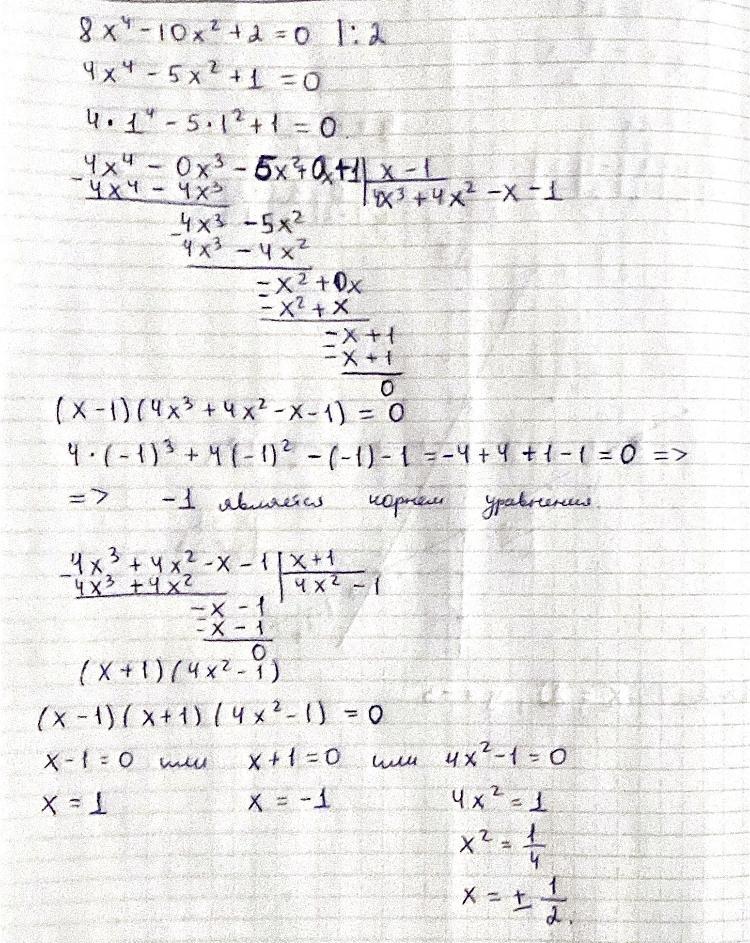 8x⁴ - 10x² + 2 = 0 |: 2
4x⁴ - 5x² + 1 = 0
4 · 1⁴ - 5 · 1² + 1 = 0
4x⁴ - 0x³ - 5x² + 0x + 1 | x - 1
- 4x⁴ - 4x³ | 4x³ + 4x² - x - 1
4x³ - 5x²
- 4x³ - 4x²
- x² + 0x
- - x² + x
- x + 1
- - x + 1
0
(x - 1)(4x³ + 4x² - x - 1) = 0
4 · (-1)³ + 4(-1)² - (-1) - 1 = -4 + 4 + 1 - 1 = 0 =>
=> -1 является корнем уравнения.
4x³ + 4x² - x - 1 | x + 1
- 4x³ + 4x² | 4x² - 1
- x - 1
- - x - 1
0
(x + 1)(4x² - 1)
(x - 1)(x + 1)(4x² - 1) = 0
x - 1 = 0 или x + 1 = 0 или 4x² - 1 = 0
x = 1 x = -1 4x² = 1
x² = 1/4
x = ± 1/2.